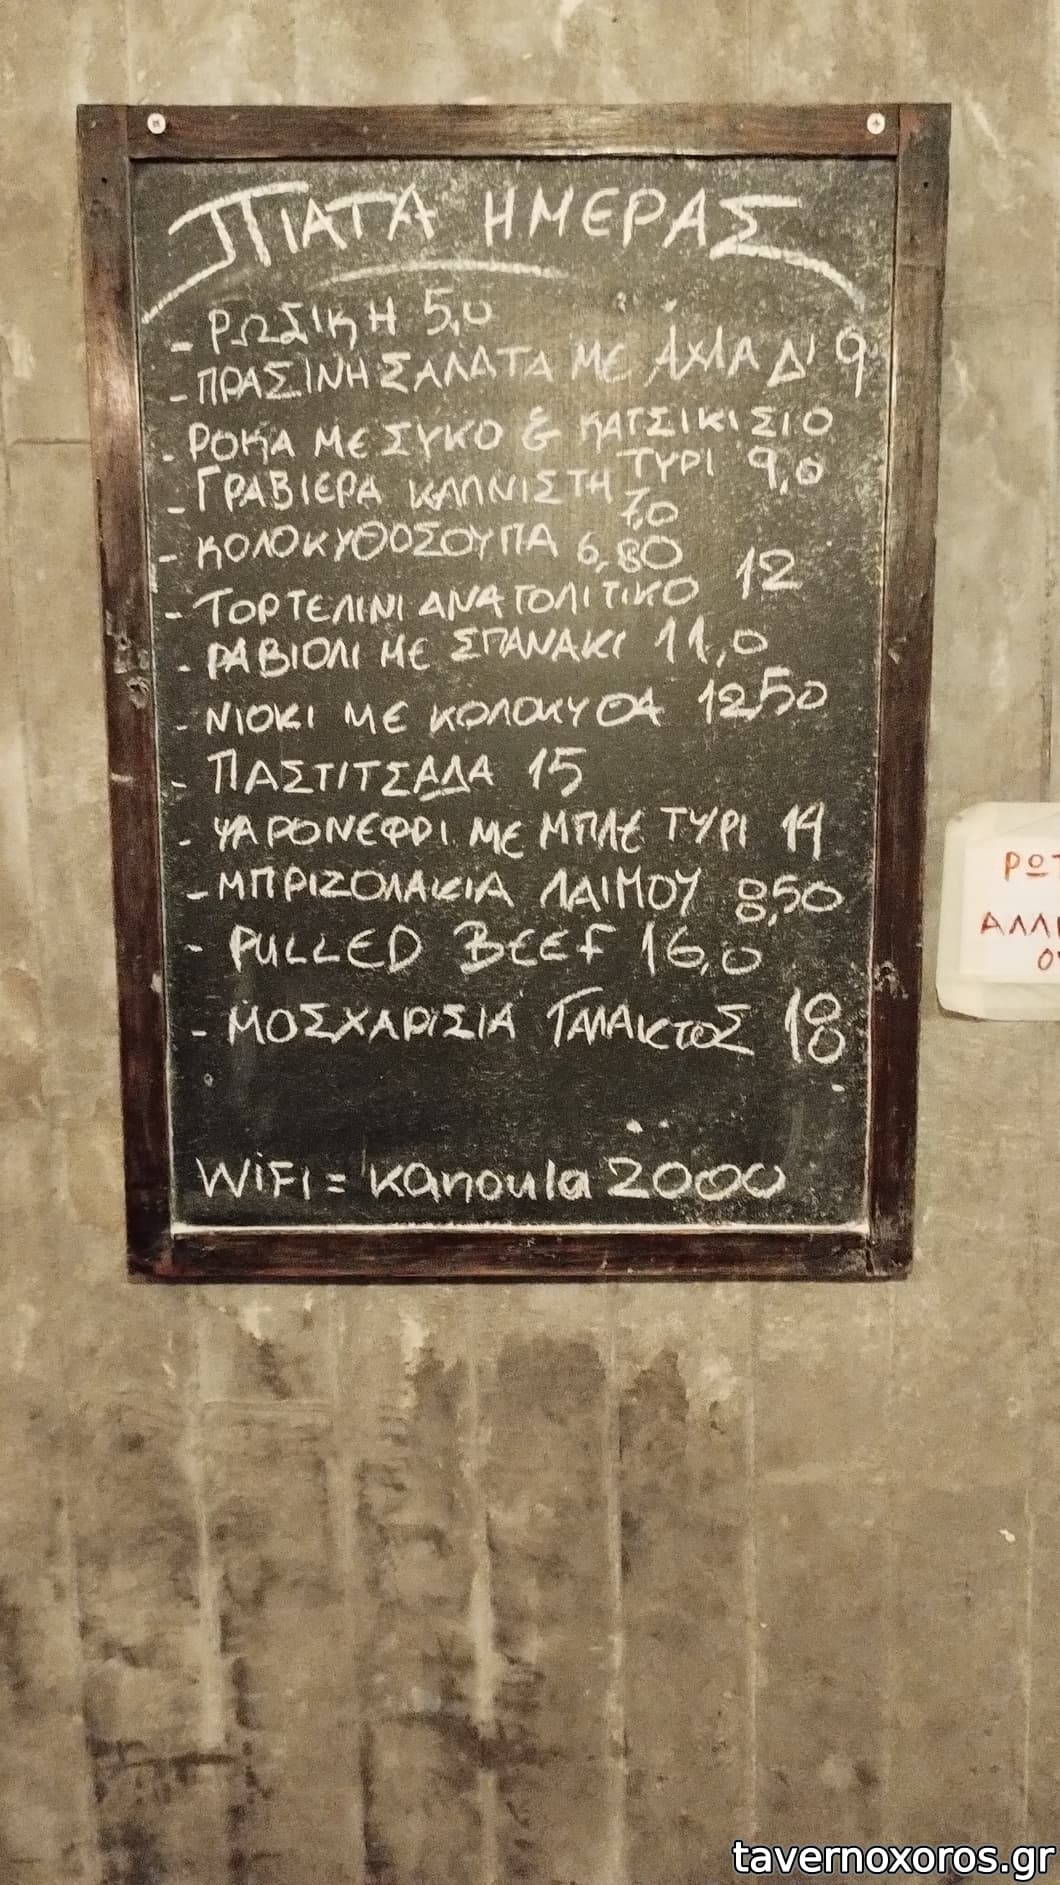 ΠΙΑΤΑ ΗΜΕΡΑΣ
- ΡΩΣΙΚΗ 5,0
- ΠΡΑΣΙΝΗ ΣΑΛΑΤΑ ΜΕ ΑΧΛΑΔΙ 9
- ΡΟΚΑ ΜΕ ΣΥΚΟ & ΚΑΤΣΙΚΙΣΙΟ
ΤΥΡΙ 9,0
- ΓΡΑΒΙΕΡΑ ΚΑΠΝΙΣΤΗ 7,0
- ΚΟΛΟΚΥΘΟΣΟΥΠΑ 6,80
- ΤΟΡΤΕΛΙΝΙ ΑΝΑΤΟΛΙΤΙΚΟ 12
- ΡΑΒΙΟΛΙ ΜΕ ΣΠΑΝΑΚΙ 11,0
- ΝΙΟΚΙ ΜΕ ΚΟΛΟΚΥΘΑ 12,50
- ΠΑΣΤΙΤΣΑΔΑ 15
- ΨΑΡΟΝΕΦΡΙ ΜΕ ΜΠΛΕ ΤΥΡΙ 14
- ΜΠΡΙΖΟΛΑΚΙΑ ΛΑΙΜΟΥ 8,50
- PULLED BEEF 16,0
- ΜΟΣΧΑΡΙΣΙΑ ΓΑΛΑΚΤΟΣ 18
WiFi = kanoula 2000
ΡΩΤ
ΑΛΛΕ
ΟΥ
tavernoxoros.gr